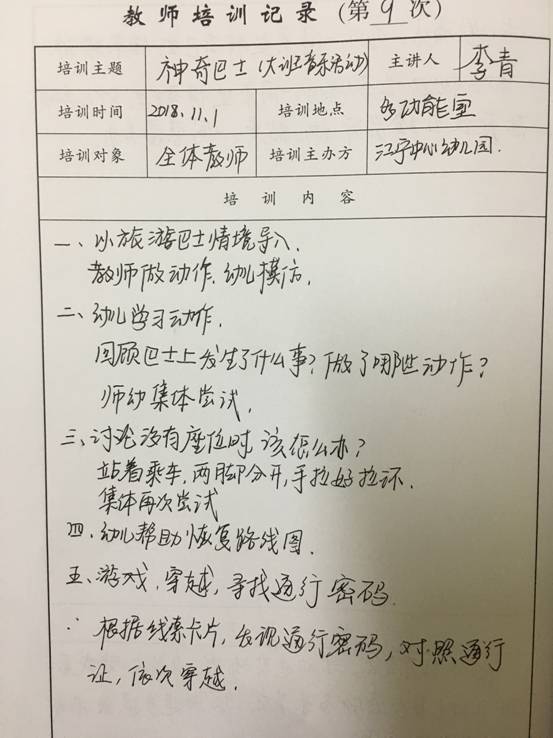 教师培训记录（第9次）
培训主题 神奇巴士（大班音乐活动） 主讲人 李青
培训时间 2018.11.1 培训地点 多功能室
培训对象 全体教师 培训主办方 江宁中心幼儿园.
培训内容
一、以旅游巴士情境导入.
教师做动作.幼儿模仿.
二、幼儿学习动作.
回顾巴士上发生了什么事？做了哪些动作？
师幼集体尝试.
三、讨论没有座位时，该怎么办？
站着乘车，两脚分开，手拉好拉环.
集体再次尝试
四.幼儿帮助恢复路线图.
五、游戏.穿越，寻找通行密码.
根据线索卡片，发现通行密码，对照通行
证，依次穿越.